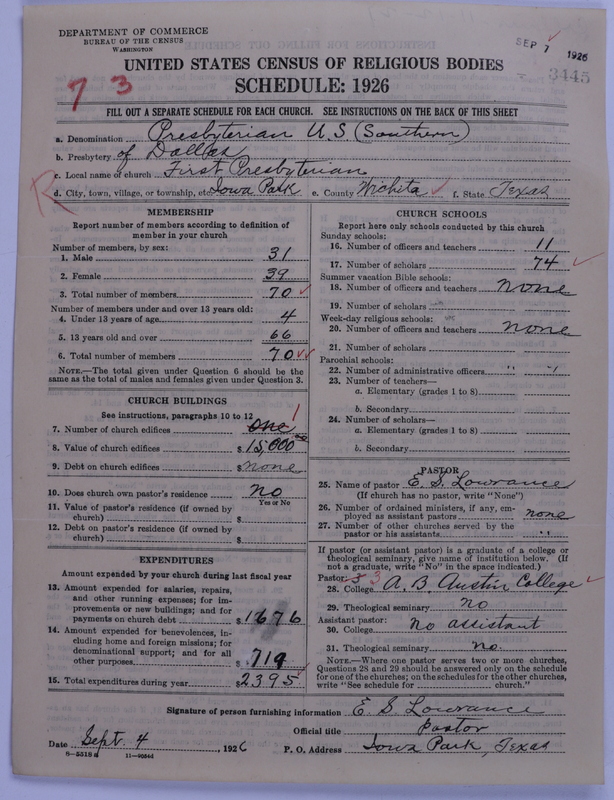 DEPARTMENT OF COMMERCE
BUREAU OF THE CENSUS
WASHINGTON
SEP 7 1926
3445
UNITED STATES CENSUS OF RELIGIOUS BODIES
SCHEDULE: 1926
7 3
FILL OUT A SEPARATE SCHEDULE FOR EACH CHURCH. SEE INSTRUCTIONS ON THE BACK OF THIS SHEET
a. Denomination Presbyterian U.S. (Southern)
b. Presbytery of Dallas
c. Local name of church First Presbyterian
R
d. City, town, village, or township, etc. Iowa Park e. County Wichita f. State Texas
MEMBERSHIP
Report number of members according to definition of
member in your church
Number of members, by sex:
1. Male 31
2. Female 39
3. Total number of members 70
Number of members under and over 13 years old:
4. Under 13 years of age 4
5. 13 years old and over 66
6. Total number of members 70
NOTE.—The total given under Question 6 should be
same as the total of males and females given under Question 3.
CHURCH BUILDINGS
See instructions, paragraphs 10 to 12
7. Number of church edifices One 1
8. Value of church edifices $15,000 00
9. Debt on church edifices $ None
10. Does church own pastor's residence No
Yes or No
11. Value of pastor's residence (if owned by
church) $
12. Debt on pastor's residence (if owned by
church) $
EXPENDITURES
Amount expended by your church during last fiscal year
13. Amount expended for salaries, repairs,
and other running expenses; for im-
provements or new buildings; and for
payments on church debt $1676
14. Amount expended for benevolences, in-
cluding home and foreign missions; for
denominational support; and for all
other purposes $719
15. Total expenditures during year $2395
CHURCH SCHOOLS
Report here only schools conducted by this church
Sunday schools:
16. Number of officers and teachers 11
17. Number of scholars 74
Summer vacation Bible schools:
18. Number of officers and teachers None
19. Number of scholars
Week-day religious schools:
20. Number of officers and teachers none
21. Number of scholars
Parochial schools:
22. Number of administrative officers " "
23. Number of teachers—
a. Elementary (grades 1 to 8)
b. Secondary
24. Number of scholars—
a. Elementary (grades 1 to 8)
b. Secondary
PASTOR
25. Name of pastor E. S. Lowrance
(If church has no pastor, write "None")
26. Number of ordained ministers, if any, em-
ployed as assistant pastors none
27. Number of other churches served by the
pastor or his assistants "
If pastor (or assistant pastor) is a graduate of a college or
theological seminary, give name of institution below. (If
not a graduate, write "No" in the space indicated.)
Pastor: 3
28. College A. B. Austin College
29. Theological seminary no
Assistant pastor:
30. College No assistant
31. Theological seminary no
NOTE.—Where one pastor serves two or more churches,
Questions 28 and 29 should be answered only on the schedule
for one of the churches; on the schedules for the other churches,
write "See schedule for church."
Signature of person furnishing information E. S. Lowrance
Official title Pastor
Date Sept. 4, 1926 P. O. Address Iowa Park, Texas